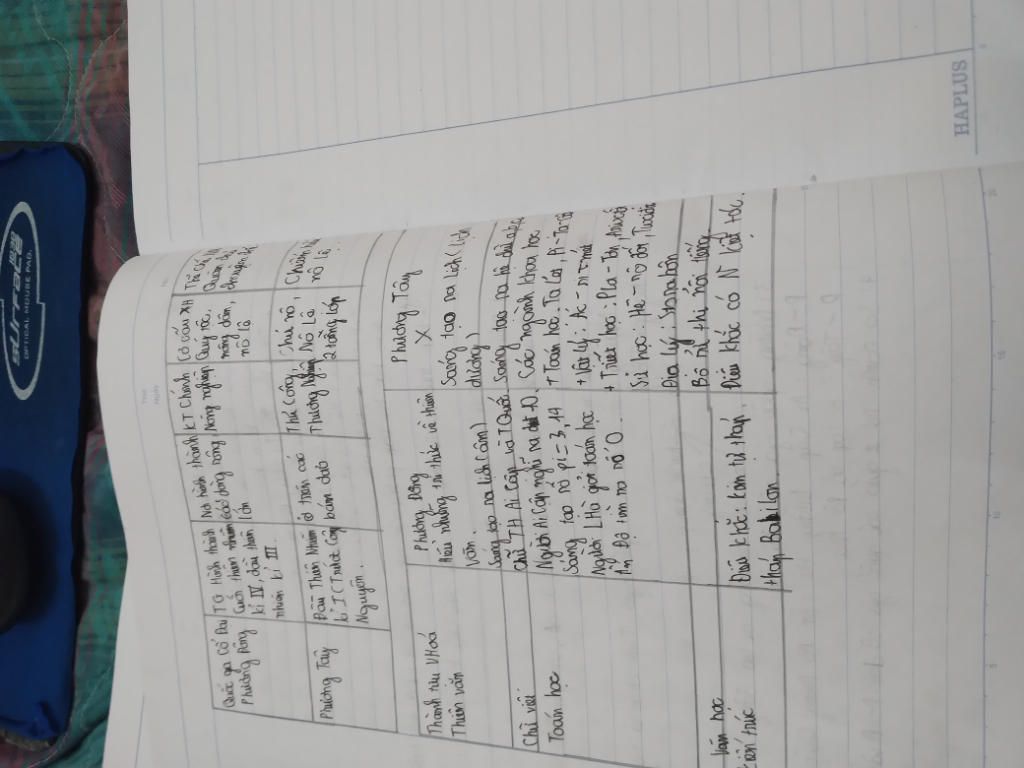 Quốc gia Cổ Đại
Phương Đông
TG Hình thành
Cuối thiên niên
kỉ IV, đầu thiên
niên kỉ III.
Nơi hình thành
các dòng sông
lớn
KT Chính
Nông nghiệp
Cơ cấu XH
Quý tộc,
nông dân,
nô lệ
Thể
Quân chủ
chuyên
Phương Tây
Đầu Thiên Niên
kỉ I (Trước Công
Nguyên.
ở trên các
bán đảo
Thủ Công,
Thương Nghiệp
Chủ nô,
Nô Lệ.
2 tầng lớp
Chiếm
nô lệ
Thành tựu VHoá
Phương Đông
Phương Tây
Thiên văn
Hiểu những tri thức về thiên
văn.
X
Sáng tạo ra lịch (âm)
Sáng tạo ra lịch (lịch
dương)
Chữ viết
Chữ TH Ai Cập và TQuốc
Sáng tạo ra hệ chữ a,b,c
Toán học
Người Ai Cập nghĩ ra 10.
Sáng tạo số pi = 3,14
Người LHà giỏi toán học
Ấn Độ tìm ra số 0.
Các ngành khoa học
+ Toán học: Ta Lét, Pi-Ta-Go
+ Vật Lý: Ác-si-mét
+ Triết học: Pla-tôn,
Sử học: Hê-rô-đốt,
Địa lý: Stơ-ra-bôn
Văn học
Bộ sử thi nổi tiếng
Kiến trúc
Điêu khắc: kim tự tháp.
tháp Babilon.
Điêu khắc có N kiệt tác.
HAPLUS
SURFACE
OPTICAL MOUSE PAD.